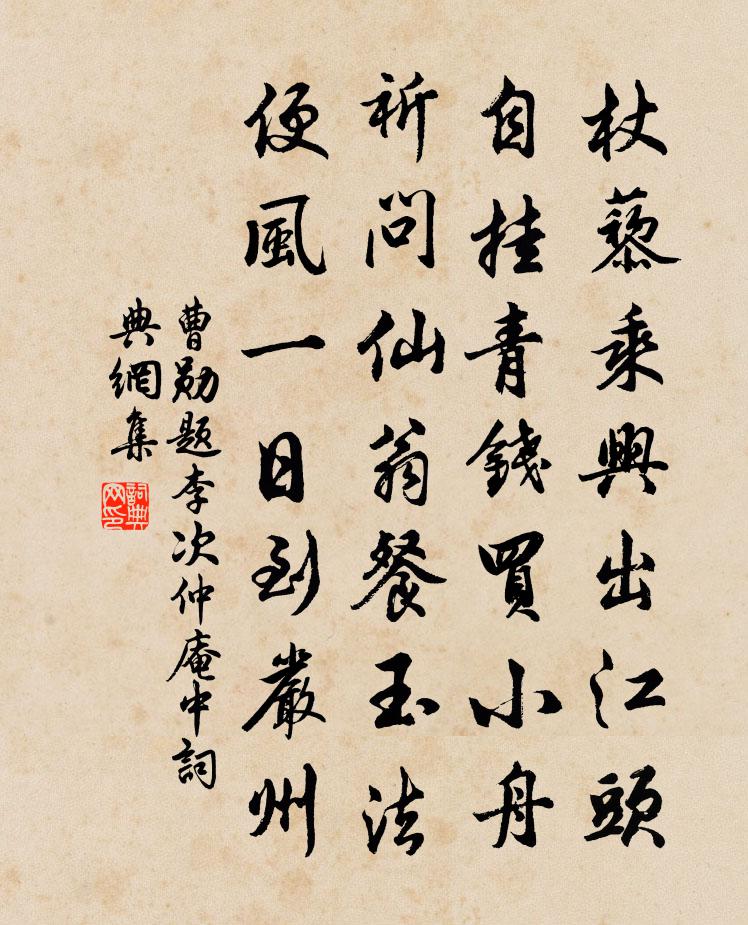 杖藜乘興出江頭
自挂青錢買小舟
祈問仙翁餐玉法
便風一日到嚴州
曹勛題李次仲庵中詞
典網集
詞典
网印